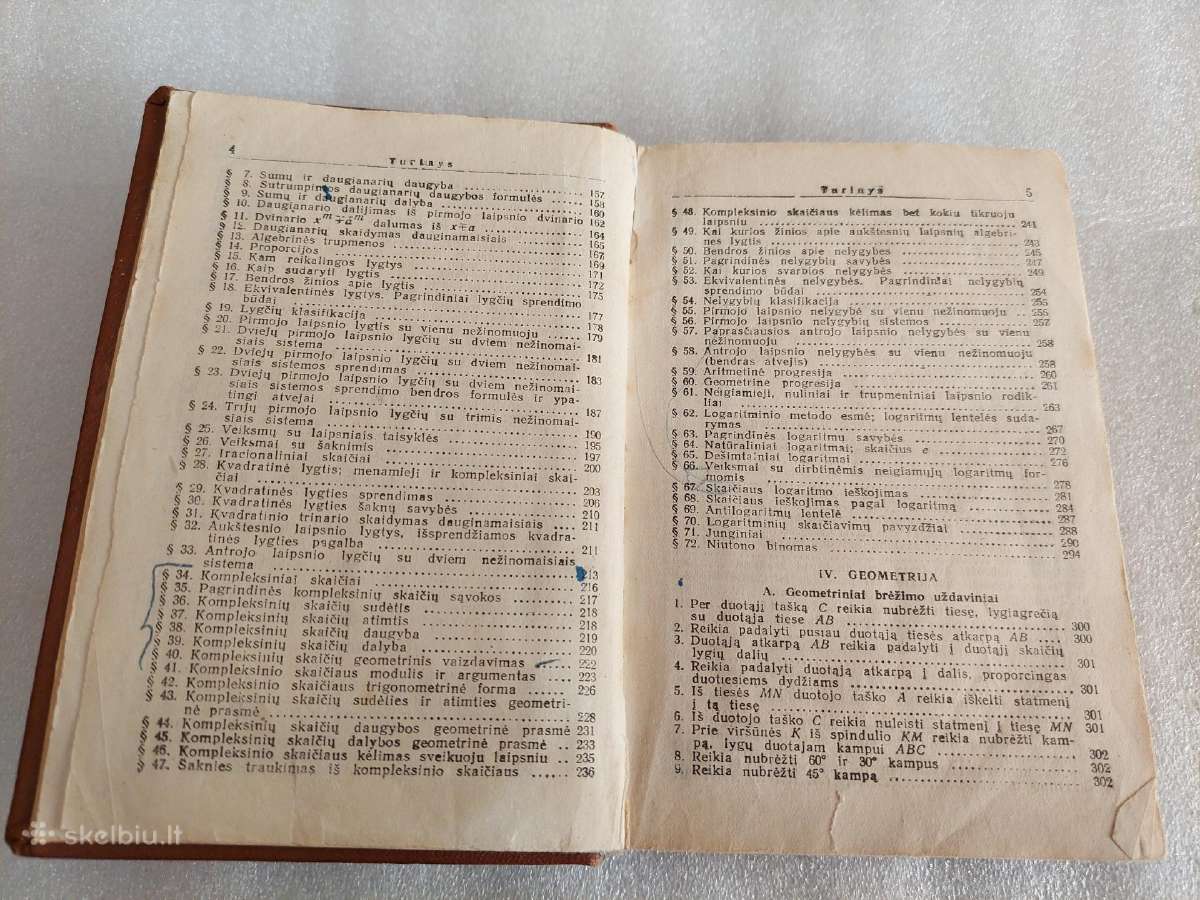 4
Turinys
§ 7. Sumų ir daugianarių daugyba ........ 157
§ 8. Sutrumpintos daugianarių daugybos formulės ... 158
§ 9. Sumų ir daugianarių dalyba ........ 160
§ 10. Daugianario dalijimas iš pirmojo laipsnio dvinario 162
§ 11. Dvinario xᵐ∓aᵐ dalumas iš x∓a
§ 12. Daugianarių skaidymas dauginamaisiais ........ 164
§ 13. Algebrinės trupmenos ........ 165
§ 14. Proporcijos ........ 167
§ 15. Kam reikalingos lygtys ........ 169
§ 16. Kaip sudaryti lygtis ........ 171
§ 17. Bendros žinios apie lygtis ........ 172
§ 18. Ekvivalentinės lygtys. Pagrindiniai lygčių sprendimo ........ 175
būdai ........ 177
§ 19. Lygčių klasifikacija ........ 178
§ 20. Pirmojo laipsnio lygtis su vienu nežinomuoju ........ 179
§ 21. Dviejų pirmojo laipsnio lygčių su dviem nežinomai-
siais sistema ........ 181
§ 22. Dviejų pirmojo laipsnio lygčių su dviem nežinomai-
siais sistemos sprendimas ........ 183
§ 23. Dviejų pirmojo laipsnio lygčių su dviem nežinomai-
siais sistemos sprendimo bendros formulės ir ypa-
tingi atvejai ........ 187
§ 24. Trijų pirmojo laipsnio lygčių su trimis nežinomai-
siais sistema ........ 190
§ 25. Veiksmų su laipsniais taisyklės ........ 195
§ 26. Veiksmai su šaknimis ........ 197
§ 27. Iracionaliniai skaičiai ........ 200
§ 28. Kvadratinė lygtis; menamieji ir kompleksiniai skai-
čiai ........ 203
§ 29. Kvadratinės lygties sprendimas ........ 206
§ 30. Kvadratinės lygties šaknų savybės ........ 210
§ 31. Kvadratinio trinario skaidymas dauginamaisiais ... 211
§ 32. Aukštesnio laipsnio lygtys, išsprendžiamos kvadra-
tinės lygties pagalba ........ 211
§ 33. Antrojo laipsnio lygčių su dviem nežinomaisiais
sistema ........ 213
§ 34. Kompleksiniai skaičiai ........ 216
§ 35. Pagrindinės kompleksinių skaičių sąvokos ........ 217
§ 36. Kompleksinių skaičių sudėtis ........ 218
§ 37. Kompleksinių skaičių atimtis ........ 218
§ 38. Kompleksinių skaičių daugyba ........ 219
§ 39. Kompleksinių skaičių dalyba ........ 220
§ 40. Kompleksinių skaičių geometrinis vaizdavimas ... 222
§ 41. Kompleksinio skaičiaus modulis ir argumentas ... 223
§ 42. Kompleksinio skaičiaus trigonometrinė forma ..... 226
§ 43. Kompleksinių skaičių sudėties ir atimties geometri-
nė prasmė ........ 228
§ 44. Kompleksinių skaičių daugybos geometrinė prasmė 231
§ 45. Kompleksinių skaičių dalybos geometrinė prasmė .. 233
§ 46. Kompleksinio skaičiaus kėlimas sveikuoju laipsniu .. 235
§ 47. Šaknies traukimas iš kompleksinio skaičiaus ..... 236
Turinys
5
§ 48. Kompleksinio skaičiaus kėlimas bet kokiu tikruoju
laipsniu ........ 241
§ 49. Kai kurios žinios apie aukštesnių laipsnių algebri-
nes lygtis ........ 243
§ 50. Bendros žinios apie nelygybes ........ 245
§ 51. Pagrindinės nelygybių savybės ........ 247
§ 52. Kai kurios svarbios nelygybės ........ 249
§ 53. Ekvivalentinės nelygybės. Pagrindiniai nelygybių
sprendimo būdai ........ 254
§ 54. Nelygybių klasifikacija ........ 255
§ 55. Pirmojo laipsnio nelygybė su vienu nežinomuoju .. 256
§ 56. Pirmojo laipsnio nelygybių sistemos ........ 257
§ 57. Paprasčiausios antrojo laipsnio nelygybės su vienu
nežinomuoju ........ 258
§ 58. Antrojo laipsnio nelygybės su vienu nežinomuoju
(bendras atvejis) ........ 258
§ 59. Aritmetinė progresija ........ 260
§ 60. Geometrinė progresija ........ 261
§ 61. Neigiamieji, nuliniai ir trupmeniniai laipsnio rodik-
liai ........ 263
§ 62. Logaritminio metodo esmė; logaritmų lentelės suda-
rymas ........ 267
§ 63. Pagrindinės logaritmų savybės ........ 270
§ 64. Natūraliniai logaritmai; skaičius e ........ 272
§ 65. Dešimtainiai logaritmai ........ 276
§ 66. Veiksmai su dirbtinėmis neigiamųjų logaritmų for-
momis ........ 278
§ 67. Skaičiaus logaritmo ieškojimas ........ 281
§ 68. Skaičiaus ieškojimas pagal logaritmą ........ 284
§ 69. Antilogaritmų lentelė ........ 287
§ 70. Logaritminių skaičiavimų pavyzdžiai ........ 288
§ 71. Junginiai ........ 290
§ 72. Niutono binomas ........ 294
IV. GEOMETRIJA
A. Geometriniai brėžimo uždaviniai
1. Per duotąjį tašką C reikia nubrėžti tiesę, lygiagrečią
su duotąja tiese AB ........ 300
2. Reikia padalyti pusiau duotąją tiesės atkarpą AB .... 300
3. Duotąją atkarpą AB reikia padalyti į duotąjį skaičių
lygių dalių ........ 301
4. Reikia padalyti duotąją atkarpą į dalis, proporcingas
duotiesiems dydžiams ........ 301
5. Iš tiesės MN duotojo taško A reikia iškelti statmenį
į tą tiesę ........ 301
6. Iš duotojo taško C reikia nuleisti statmenį į tiesę MN 301
7. Prie viršūnės K iš spindulio KM reikia nubrėžti kam-
pą, lygų duotajam kampui ABC ........ 302
8. Reikia nubrėžti 60° ir 30° kampus ........ 302
9. Reikia nubrėžti 45° kampą ........ 302
skelbiu.lt